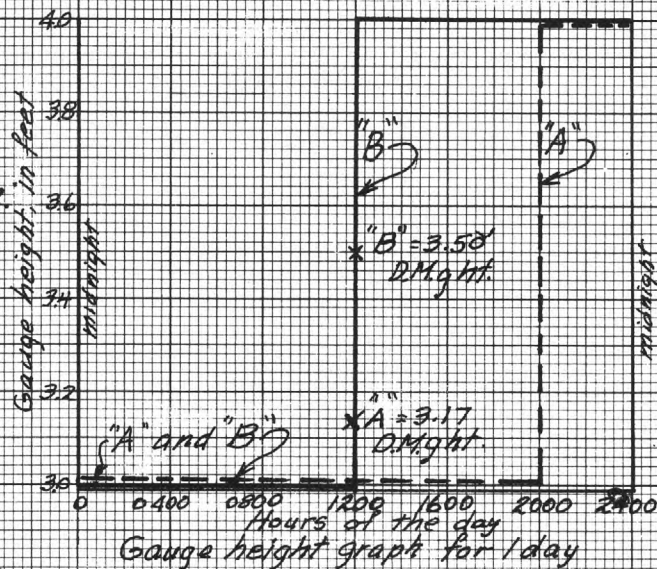 4.0
3.8
3.6
3.4
3.2
3.0
Gauge height, in feet
midnight
"B"
"A"
"B" = 3.50'
D.M.ght.
"A" = 3.17
D.M.ght.
"A" and "B"
midnight
0 0400 0800 1200 1600 2000 2400
Hours of the day
Gauge height graph for 1 day